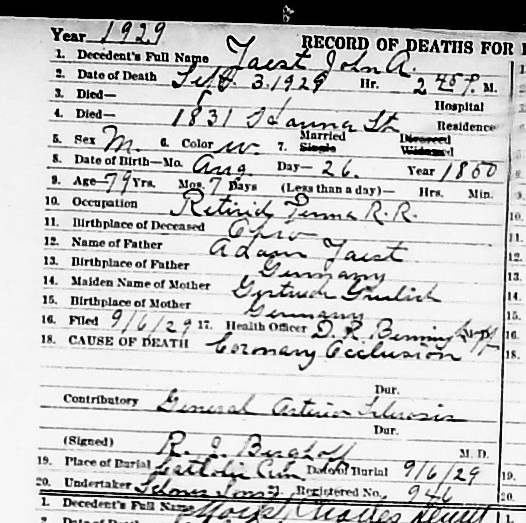 Year 1929 RECORD OF DEATHS FOR
1. Decedent's Full Name Jaest John A.
2. Date of Death Sept. 3. 1929 Hr. 2 45 P. M.
3. Died— Hospital
4. Died— 1831 Hanna St. Residence
5. Sex M. 6. Color W. 7. Married Single Divorced Widowed
8. Date of Birth—Mo. Aug Day— 26. Year 1850
9. Age 79 Yrs. Mos. 7 Days (Less than a day)— Hrs. Min.
10. Occupation Retired Penna R.R.
11. Birthplace of Deceased Ohio
12. Name of Father Adam Jaest
13. Birthplace of Father Germany
14. Maiden Name of Mother Gertrude
15. Birthplace of Mother Germany
16. Filed 9/6/29 17. Health Officer D. R. Benninghoff
18. CAUSE OF DEATH Coronary Occlusion
Dur.
Contributory General Arterio Sclerosis
Dur.
(Signed) R. J. Berghoff M. D.
19. Place of Burial Catholic Cem Date of Burial 9/6/29
20. Undertaker Sons Registered No. 946
1. Decedent's Full Name Charles
2. Date of Death